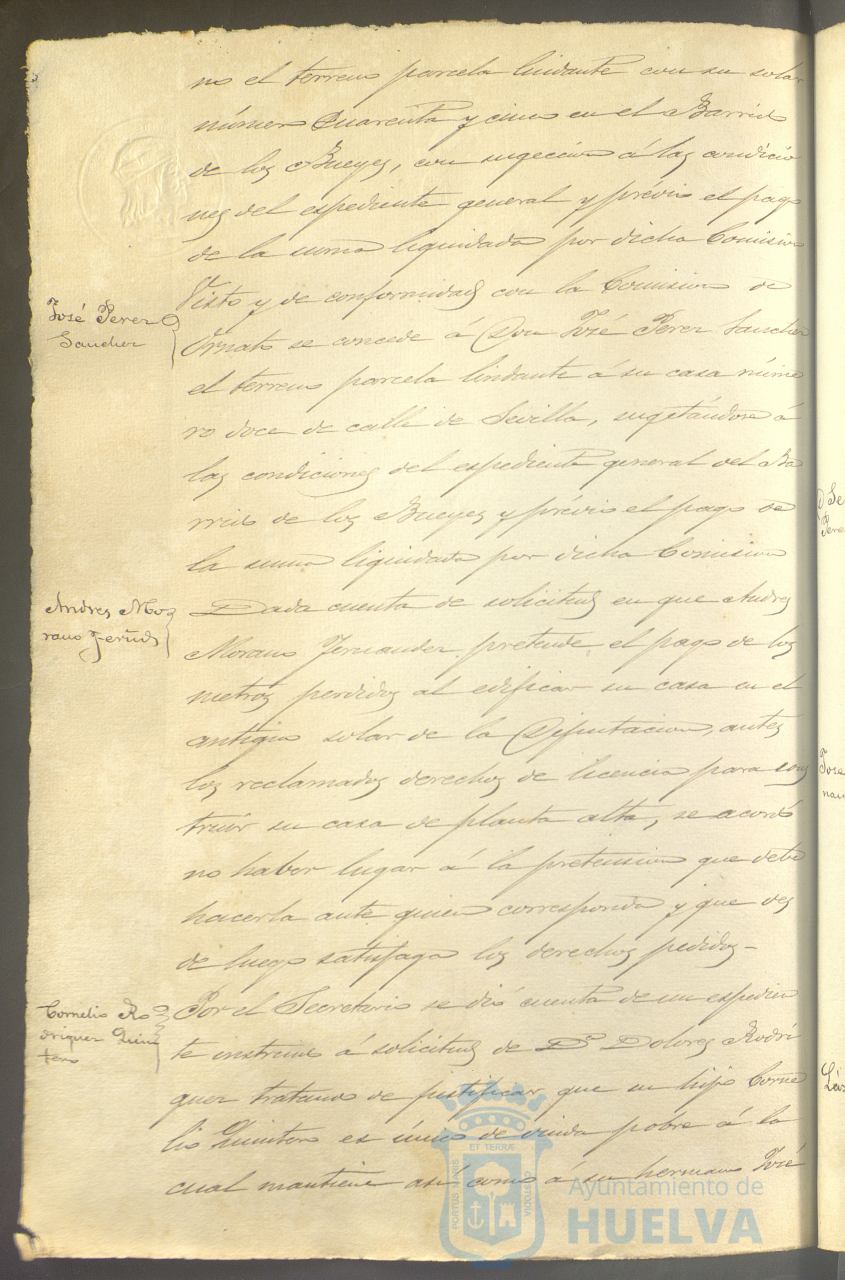 no el terreno parcela lindante con su solar
número Cuarenta y cinco en el Barrio
de los Bueyes, con sugeccion á las condicio
nes del expediente general y prévio el pago
de la suma liquidada por dicha Comision
José Perez
Sanchez
Visto y de conformidad con la Comision de
Ornato se concede á Don José Perez Sanchez
el terreno parcela lindante á su casa núme
ro doce de calle de Sevilla, sugetándose á
las condiciones del expediente general del Ba
rrio de los Bueyes y prévio el pago de
la suma liquidada por dicha Comision
Andres Mo
rano Fernd
Dada cuenta de solicitud en que Andres
Morano Fernandez pretende el pago de los
metros perdidos al edificar su casa en el
antiguo solar de la Diputacion, antes
los reclamados derechos de licencia para cons
truir su casa de planta alta, se acordó
no haber lugar á la pretension que debe
hacerla ante quien corresponda y que des
de luego satisfaga los derechos pedidos-
Cornelio Ro
driguez Quin
tero
Por el Secretario se dió cuenta de un expedien
te instruido á solicitud de Dª Dolores Rodri
guez tratando de justificar que su hijo Corne
lio Quintero es único de viuda pobre á la
cual mantiene así como á su hermano José
PORTUS MARIS ET TERRÆ CUSTODIA
Ayuntamiento de
HUELVA